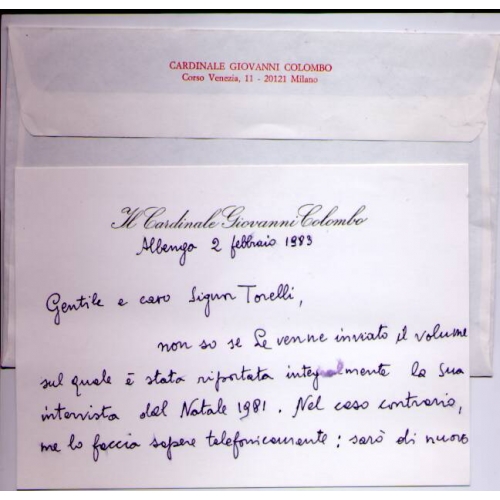 CARDINALE GIOVANNI COLOMBO
Corso Venezia, 11 - 20121 Milano
Il Cardinale Giovanni Colombo
Albenga 2 febbraio 1983
Gentile e caro Signor Torelli,
non so se Le venne inviato il volume
sul quale è stata riportata integralmente la Sua
intervista dal Natale 1981. Nel caso contrario,
me lo faccia sapere telefonicamente: sarò di nuovo